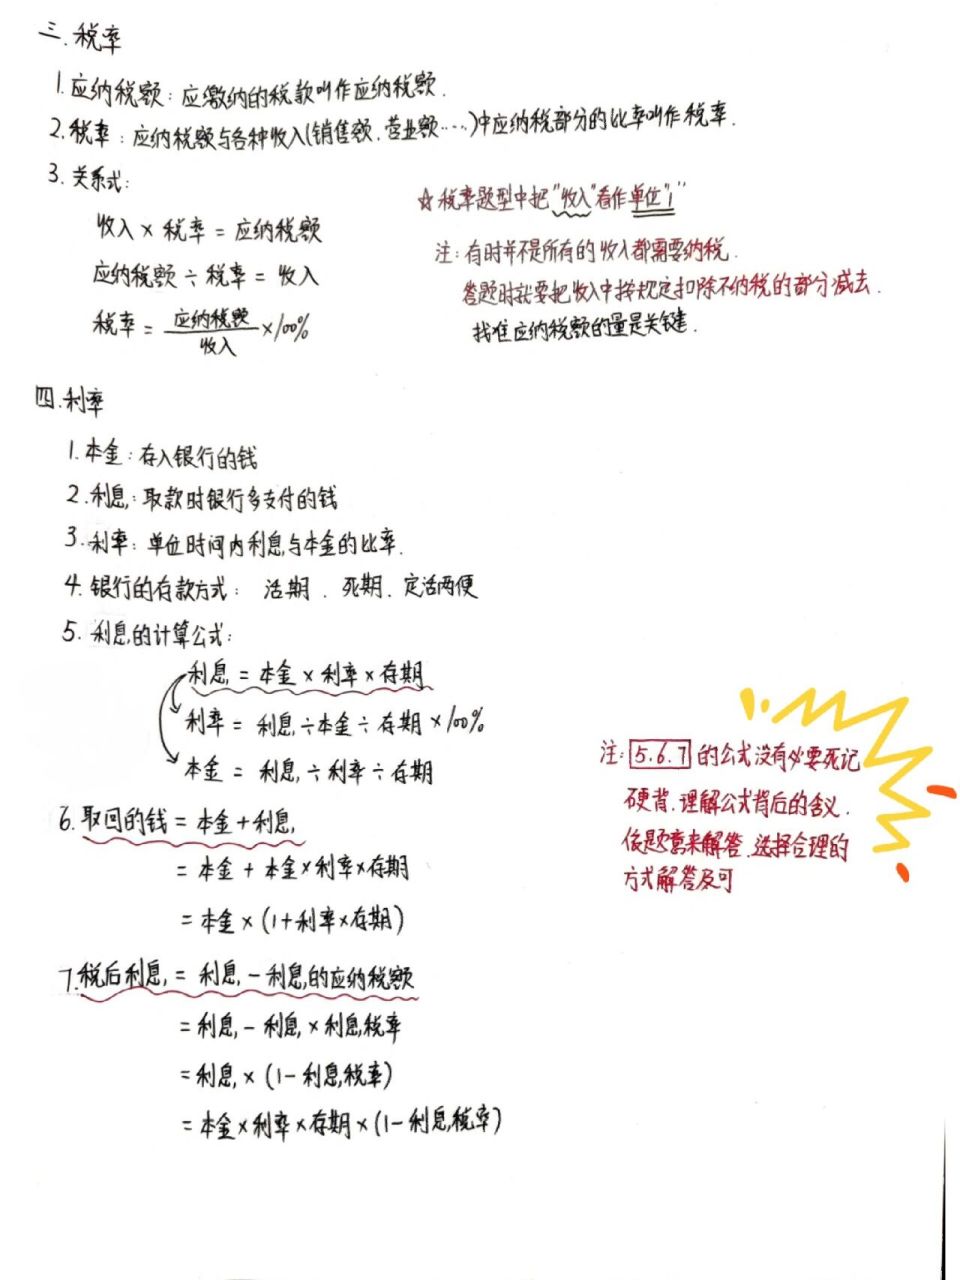 三.税率
1.应纳税额：应缴纳的税款叫作应纳税额.
2.税率：应纳税额与各种收入(销售额.营业额····)中应纳税部分的比率叫作税率.
3.关系式：
收入×税率=应纳税额
应纳税额÷税率=收入
税率=应纳税额/收入×100%
☆税率题型中把"收入"看作单位"1"
注：有时并不是所有的收入都需要纳税.
答题时就要把收入中按规定扣除不纳税的部分减去.
找准应纳税额的量是关键.
四.利率
1.本金：存入银行的钱
2.利息：取款时银行多支付的钱
3.利率：单位时间内利息与本金的比率.
4.银行的存款方式：活期.死期.定活两便
5.利息的计算公式：
利息=本金×利率×存期
利率=利息÷本金÷存期×100%
本金=利息÷利率÷存期
注：5.6.7的公式没有必要死记
硬背.理解公式背后的含义.
依题意来解答.选择合理的
方式解答及可
6.取回的钱=本金+利息
=本金+本金×利率×存期
=本金×(1+利率×存期)
7.税后利息=利息-利息的应纳税额
=利息-利息×利息税率
=利息×(1-利息税率)
=本金×利率×存期×(1-利息税率)